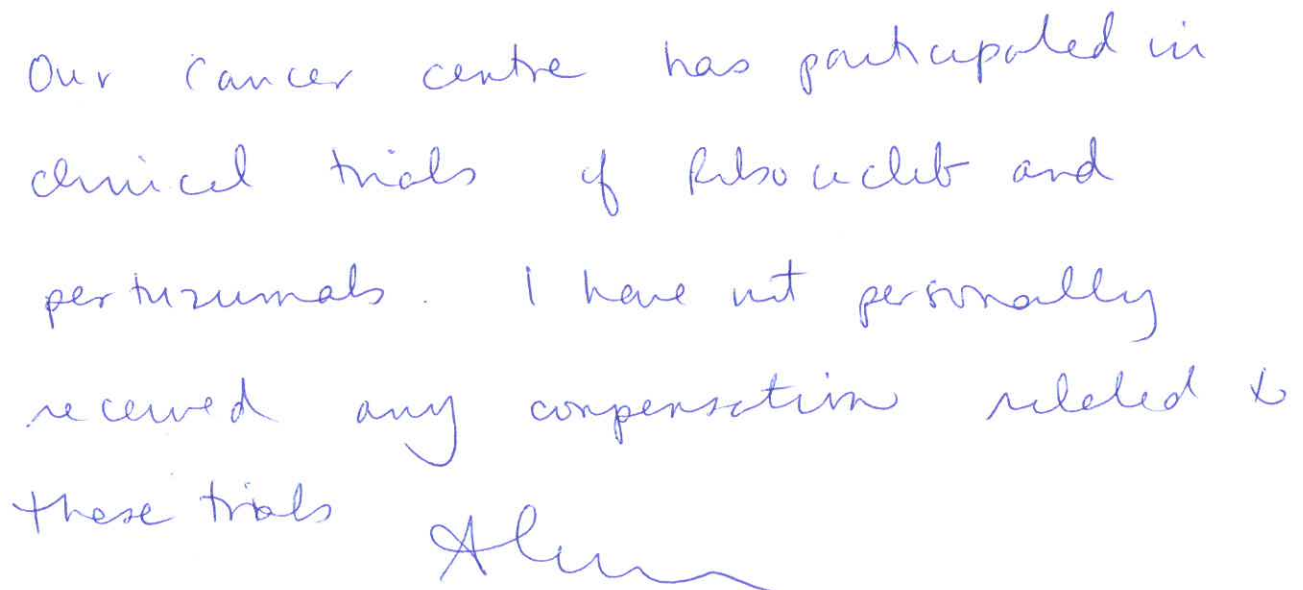 Our cancer centre has participated in
clinical trials of Ribociclib and
pertuzumab. I have not personally
received any compensation related to
these trials